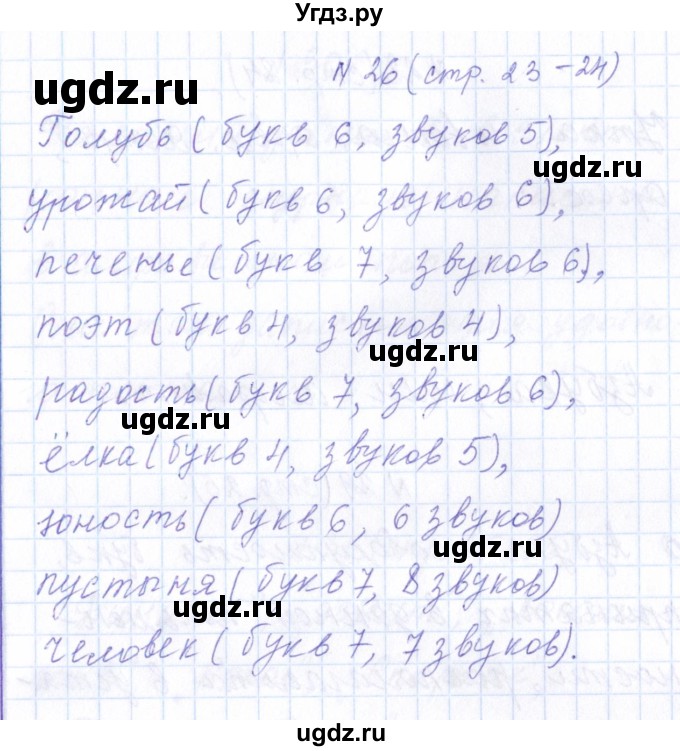 Угдз.ру
N 26 (стр. 23 - 24)
ugdz.ru
Голубь (букв 6, звуков 5),
ugdz.ru
урожай (букв 6, звуков 6),
печенье (букв 7, звуков 6),
поэт (букв 4, звуков 4),
ugdz.ru
радость (букв 7, звуков 6),
ugdz.ru
ёлка (букв 4, звуков 5),
юность (букв 6, 6 звуков)
ugdz.ru
пустыня (букв 7, 8 звуков)
ugdz.ru
человек (букв 7, 7 звуков).
ugdz.ru